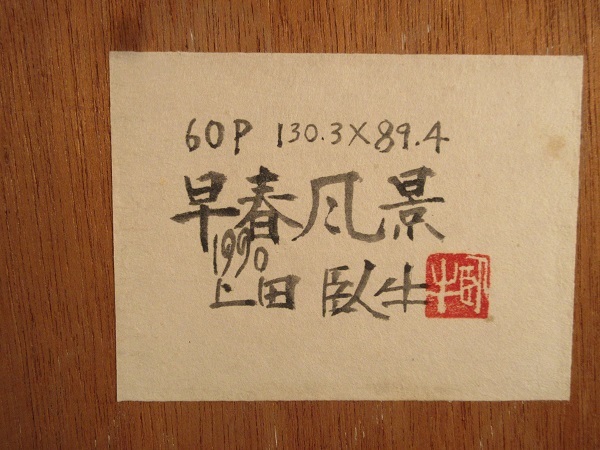 60P 130.3×89.4
早春風景
1990
上田 臥牛
臥牛